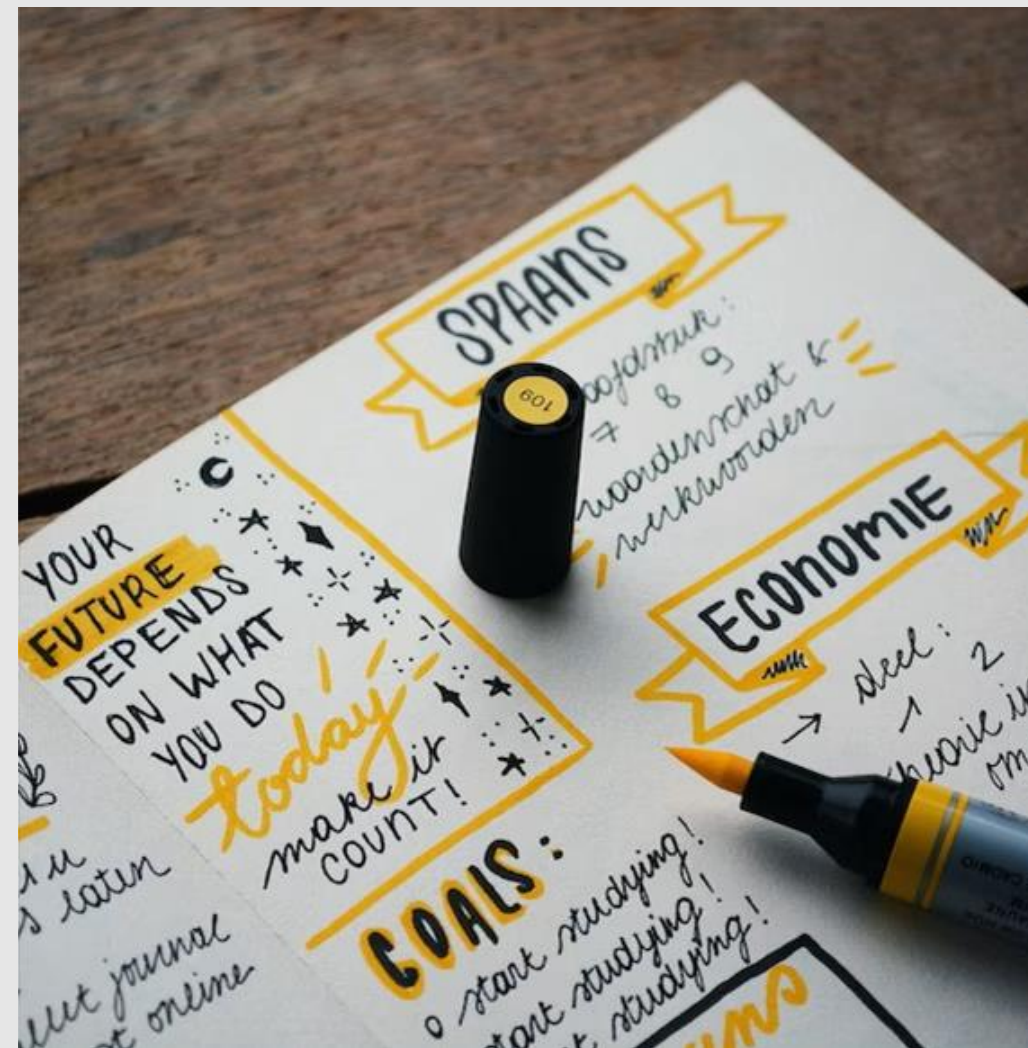 SPAANS
7 8 9
woordenschat &
werkwoorden
ECONOMIE
→ deel:
1 2
YOUR
FUTURE
DEPENDS
ON WHAT
YOU DO
today
make it
COUNT!
GOALS:
o start studying!
start studying!
studying!
laten
journal
online
109